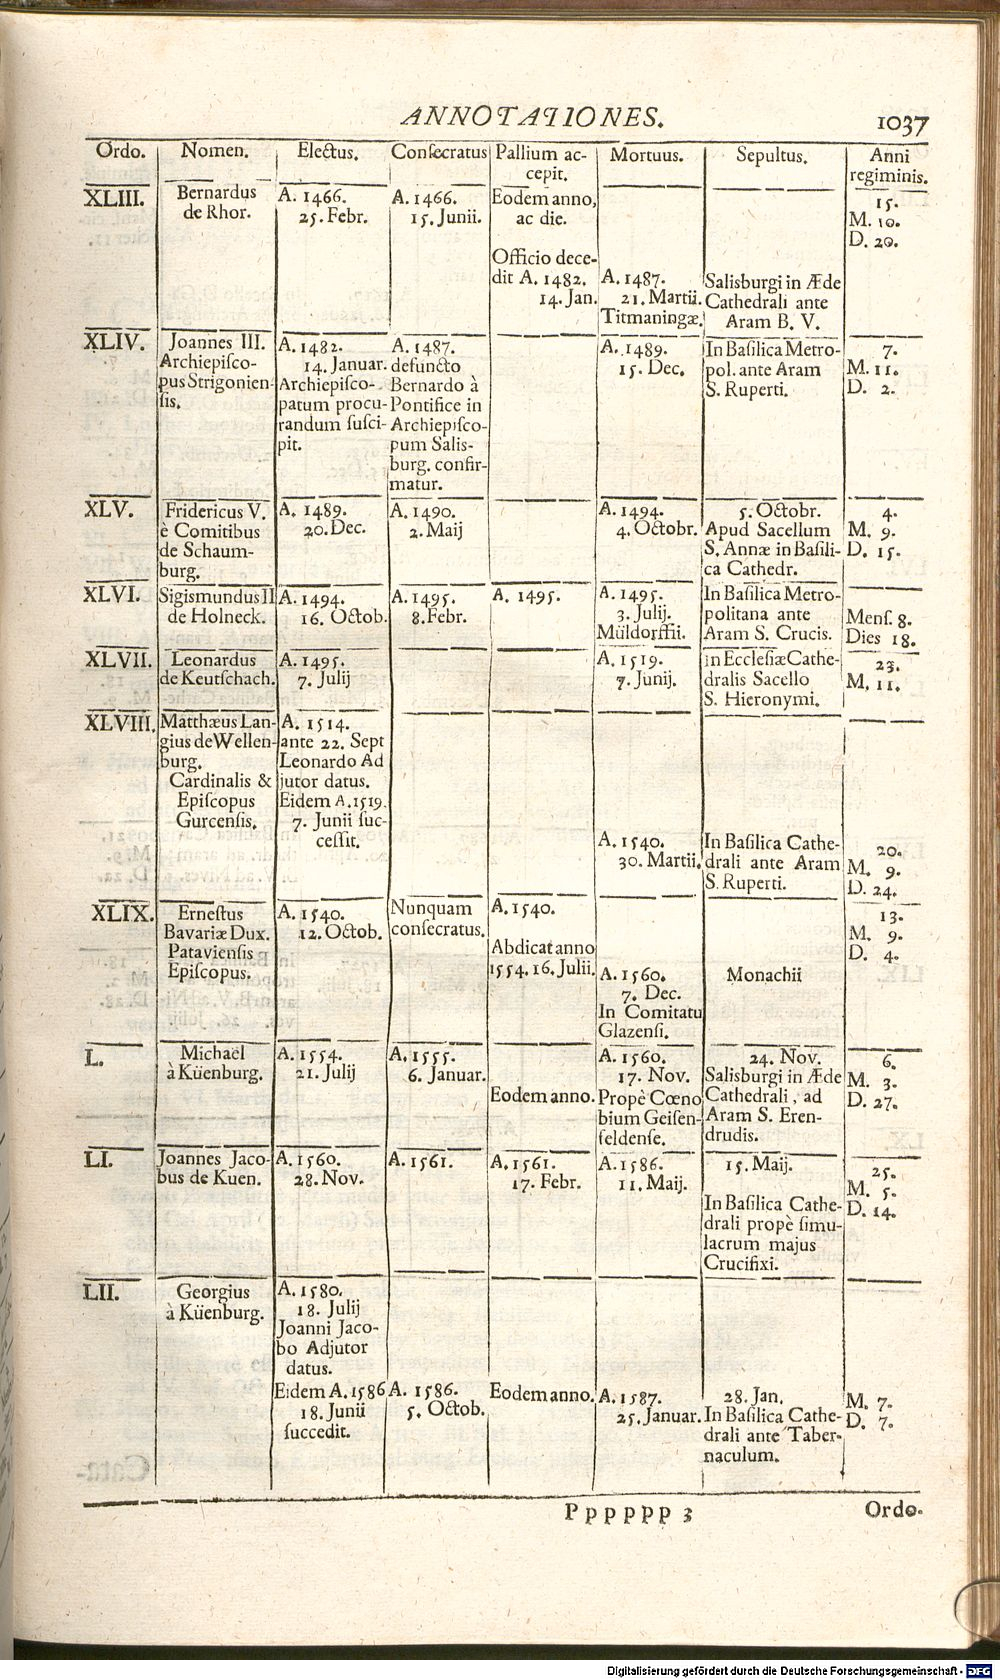 ANNOTATIONES.
1037
Ordo.
Nomen.
Electus.
Consecratus
Pallium ac-
cepit.
Mortuus.
Sepultus.
Anni
regiminis.
XLIII.
Bernardus
de Rhor.
A. 1466.
25. Febr.
A. 1466.
15. Junii.
Eodem anno,
ac die.
Officio dece-
dit A. 1482.
14. Jan.
A. 1487.
21. Martii.
Titmaningæ.
Salisburgi in Æde
Cathedrali ante
Aram B. V.
15.
M. 10.
D. 20.
XLIV.
Joannes III.
Archiepisco-
pus Strigonien-
sis.
A. 1482.
14. Januar.
Archiepisco-
patum procu-
randum susci-
pit.
A. 1487.
defuncto
Bernardo à
Pontifice in
Archiepisco-
pum Salis-
burg. confir-
matur.
A. 1489.
15. Dec.
In Basilica Metro-
pol. ante Aram
S. Ruperti.
7.
M. 11.
D. 2.
XLV.
Fridericus V.
è Comitibus
de Schaum-
burg.
A. 1489.
20. Dec.
A. 1490.
2. Maij
A. 1494.
4. Octobr.
5. Octobr.
Apud Sacellum
S. Annæ in Basili-
ca Cathedr.
4.
M. 9.
D. 15.
XLVI.
Sigismundus II
de Holneck.
A. 1494.
16. Octob.
A. 1495.
8. Febr.
A. 1495.
A. 1495.
3. Julij.
Müldorffii.
In Basilica Metro-
politana ante
Aram S. Crucis.
Mens. 8.
Dies 18.
XLVII.
Leonardus
de Keutschach.
A. 1495.
7. Julij
A. 1519.
7. Junij.
in Ecclesiæ Cathe-
dralis Sacello
S. Hieronymi.
23.
M. 11.
XLVIII.
Matthæus Lan-
gius de Wellen-
burg.
Cardinalis &
Episcopus
Gurcensis.
A. 1514.
ante 22. Sept
Leonardo Ad
jutor datus.
Eidem A. 1519.
7. Junii suc-
cessit.
A. 1540.
30. Martii.
In Basilica Cathe-
drali ante Aram
S. Ruperti.
20.
M. 9.
D. 24.
XLIX.
Ernestus
Bavariæ Dux.
Pataviensis
Episcopus.
A. 1540.
12. Octob.
Nunquam
consecratus.
A. 1540.
Abdicat anno
1554. 16. Julii.
A. 1560.
7. Dec.
In Comitatu
Glazensi.
Monachii
13.
M. 9.
D. 4.
L.
Michaël
à Küenburg.
A. 1554.
21. Julij
A. 1555.
6. Januar.
Eodem anno.
A. 1560.
17. Nov.
Propè Cœno
bium Geisen-
feldense.
24. Nov.
Salisburgi in Æde
Cathedrali, ad
Aram S. Eren-
drudis.
6.
M. 3.
D. 27.
LI.
Joannes Jaco-
bus de Kuen.
A. 1560.
28. Nov.
A. 1561.
A. 1561.
17. Febr.
A. 1586.
11. Maij.
15. Maij.
In Basilica Cathe-
drali propè simu-
lacrum majus
Crucifixi.
25.
M. 5.
D. 14.
LII.
Georgius
à Küenburg.
A. 1580.
18. Julij
Joanni Jaco-
bo Adjutor
datus.
Eidem A. 1586
18. Junii
succedit.
A. 1586.
5. Octob.
Eodem anno.
A. 1587.
25. Januar.
28. Jan.
In Basilica Cathe-
drali ante Taber-
naculum.
M. 7.
D. 7.
P p p p p p 3
Ordo.
Digitalisierung gefördert durch die Deutsche Forschungsgemeinschaft - DFG